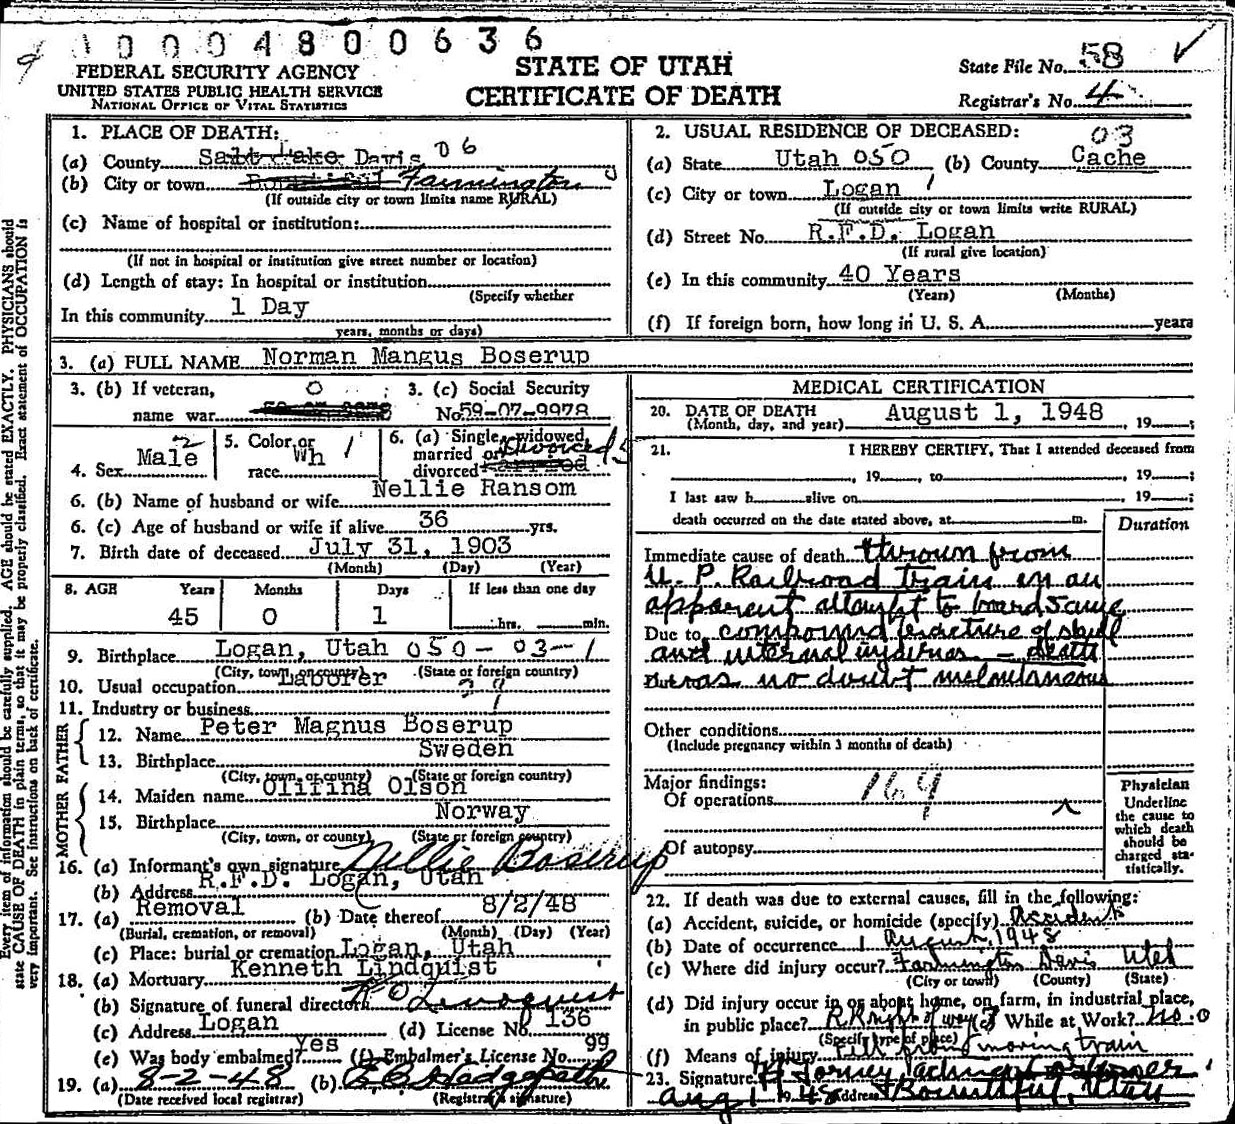 1000 4800636
FEDERAL SECURITY AGENCY
UNITED STATES PUBLIC HEALTH SERVICE
NATIONAL OFFICE OF VITAL STATISTICS
STATE OF UTAH
CERTIFICATE OF DEATH
State File No. 58
Registrar's No. 4
Every item of information should be carefully supplied. AGE should be stated EXACTLY. PHYSICIANS should
state CAUSE OF DEATH in plain terms, so that it may be properly classified. Exact statement of OCCUPATION is
very important. See instructions on back of certificate.
1. PLACE OF DEATH:
(a) County Salt Lake Davis 06
(b) City or town Bountiful Farmington
(If outside city or town limits name RURAL)
(c) Name of hospital or institution:
(If not in hospital or institution give street number or location)
(d) Length of stay: In hospital or institution
(Specify whether
In this community 1 Day
years, months or days)
2. USUAL RESIDENCE OF DECEASED:
03
(a) State Utah 050 (b) County Cache
(c) City or town Logan 1
(If outside city or town limits write RURAL)
(d) Street No. R.F.D. Logan
(If rural give location)
(e) In this community 40 Years
(Years) (Months)
(f) If foreign born, how long in U. S. A. years
3. (a) FULL NAME Norman Mangus Boserup
3. (b) If veteran, 0
name war
3. (c) Social Security
No. 59-07-9978
4. Sex Male 2
5. Color or race Wh 1
6. (a) Single, widowed
married or Divorced 5
divorced Married
6. (b) Name of husband or wife Nellie Ransom
6. (c) Age of husband or wife if alive 36 yrs.
7. Birth date of deceased July 31, 1903
(Month) (Day) (Year)
8. AGE Years Months Days If less than one day
45 0 1 hrs. min.
9. Birthplace Logan, Utah 050-03-1
(City, town, or county) (State or foreign country)
10. Usual occupation Laborer
11. Industry or business
FATHER
12. Name Peter Magnus Boserup
13. Birthplace Sweden
(City, town, or county) (State or foreign country)
MOTHER
14. Maiden name Olifina Olson
15. Birthplace Norway
(City, town, or county) (State or foreign country)
16. (a) Informant's own signature Nellie Boserup
(b) Address R.F.D. Logan, Utah
17. (a) Removal (b) Date thereof 8/2/48
(Burial, cremation, or removal) (Month) (Day) (Year)
(c) Place: burial or cremation Logan, Utah
18. (a) Mortuary Kenneth Lindquist
(b) Signature of funeral director K O Lindquist
(c) Address Logan (d) License No. 136
(e) Was body embalmed? Yes (f) Embalmer's License No. 99
19. (a) 8-2-48 (b)
(Date received local registrar) (Registrar's signature)
MEDICAL CERTIFICATION
20. DATE OF DEATH August 1, 1948, 19 ;
(Month, day, and year)
21. I HEREBY CERTIFY, That I attended deceased from
, 19 , to , 19 ;
I last saw h alive on , 19 ;
death occurred on the date stated above, at m.
Duration
Immediate cause of death thrown from
U. P. Railroad train in an
apparent attempt to board same
Due to compound fracture of skull
and internal injuries - death
Due to was no doubt instantaneous
Other conditions
(Include pregnancy within 3 months of death)
Major findings: 169
Of operations
Of autopsy
Physician
Underline
the cause to
which death
should be
charged sta-
tistically.
22. If death was due to external causes, fill in the following:
(a) Accident, suicide, or homicide (specify) Accident
(b) Date of occurrence 1 August, 1948
(c) Where did injury occur? Farmington Davis Utah
(City or town) (County) (State)
(d) Did injury occur in or about home, on farm, in industrial place,
in public place? R.R right of way (e) While at Work? no
(Specify type of place)
(f) Means of injury Fell from moving train
23. Signature
Aug 1 1948 Address Bountiful, Utah